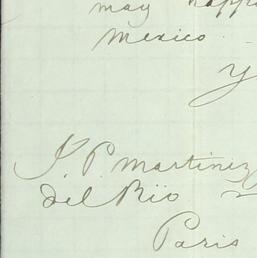 may happ
Mexico.
Y
J. P. Martinez
del Rio
Paris